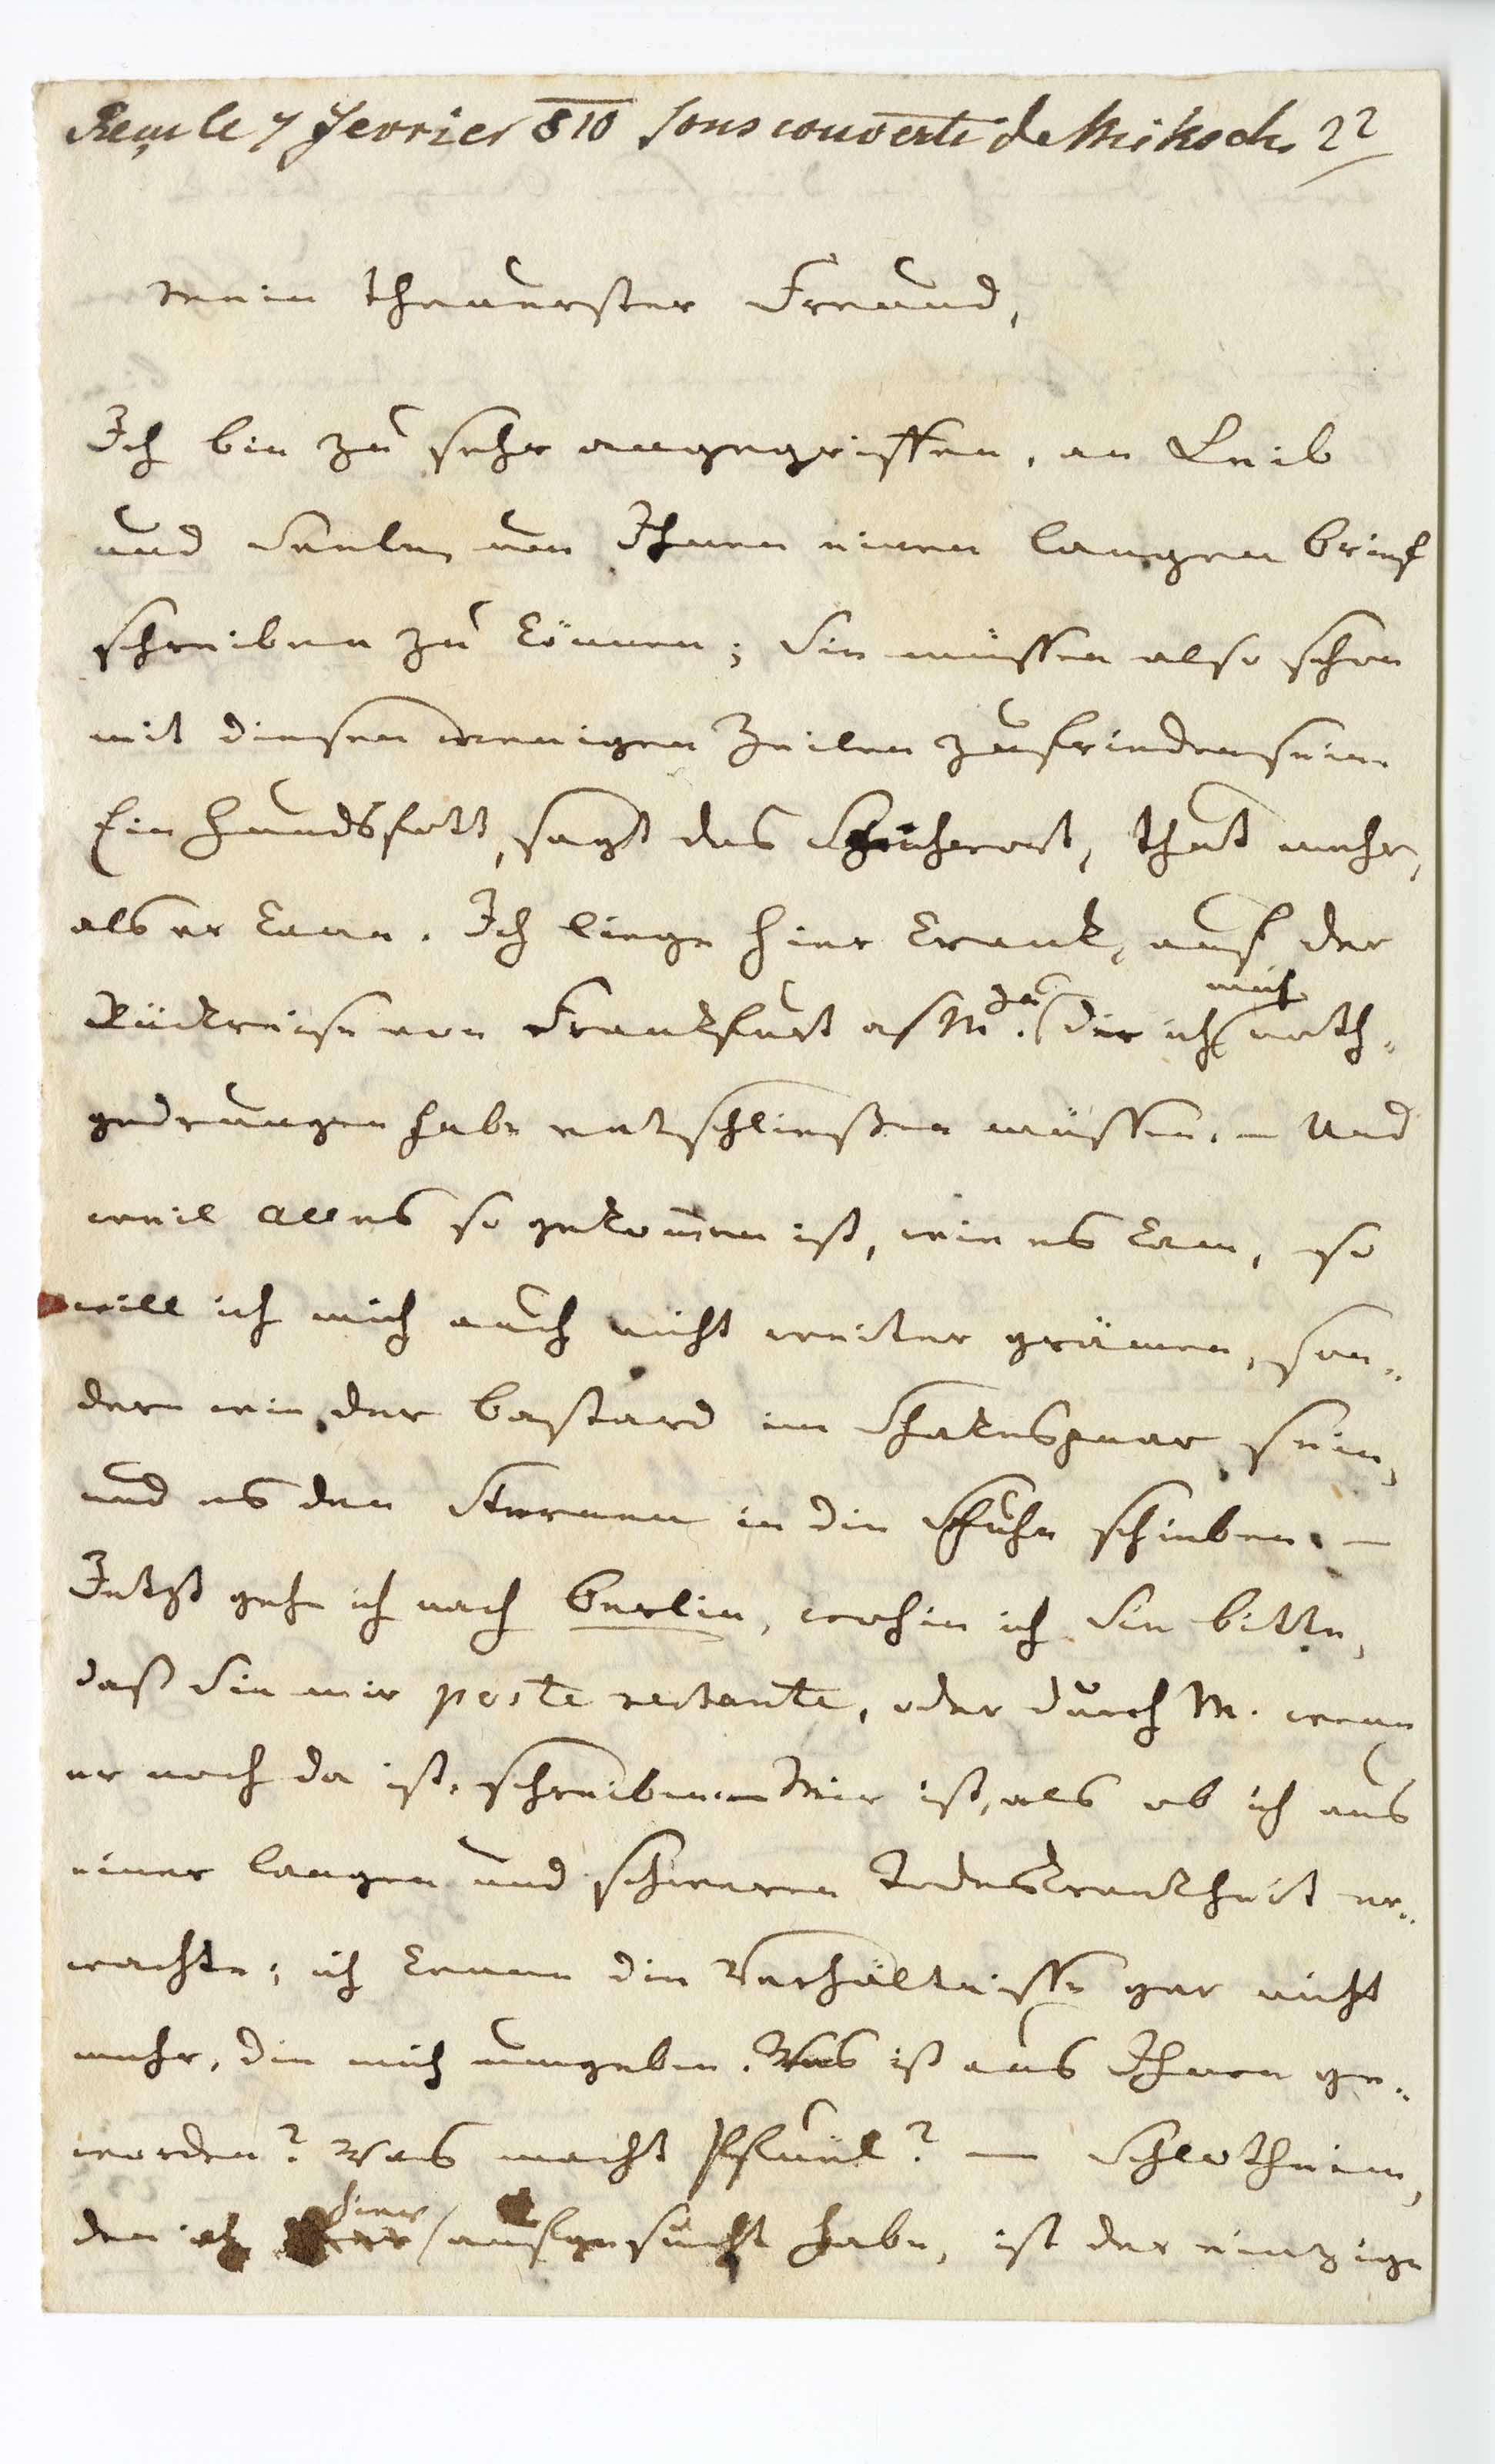 Reçu le 7 fevrier 810 sous couverte de Mikosch 22
mein theuerster Freund,
Ich bin zu sehr angegriffen, an Leib
und Seele, um Ihnen einen langen brief
schreiben zu können; Sie müssen also schon
mit diesen wenigen Zeilen zufrieden sein.
Ein Hundsfott, sagt das Sprüchwort, thut mehr,
als er kann. Ich liege hier krank, auf der
Rückreise von Frankfurt a/M. zu der ich mich noth-
gedrungen habe entschließen müssen. – Und
weil alles so gekom̄en ist, wie es kam, so
will ich mich auch nicht weiter grämen, son-
dern wie der bastard im Shakespear sein,
und es den Sternen in die Schuhe schieben. –
Jetzt gehe ich nach berlin, wohin ich Sie bitte,
daß Sie mir poste restante, oder durch M. wenn
er noch da ist, schreiben. – Mir ist, als ob ich aus
einer langen und schweren Todeskrankheit er-
wachte; ich kenne die Verhältnisse gar nicht
mehr, die mich umgeben. Was ist aus Ihnen ge-
worden? Was macht Pfuël? – Schlotheim,
den ich hier aufgesucht habe, ist der einzige